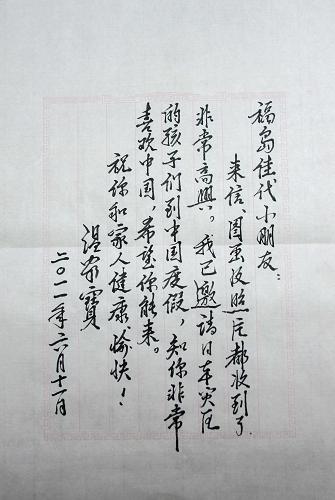 福島佳代小朋友：
来信、图画及照片都收到了，
非常高興。我已邀請日本灾区
的孩子们到中国度假，知你非常
喜欢中国，希望你能来。
祝你和家人健康、愉快！
温家寶
二〇一一年六月十一日